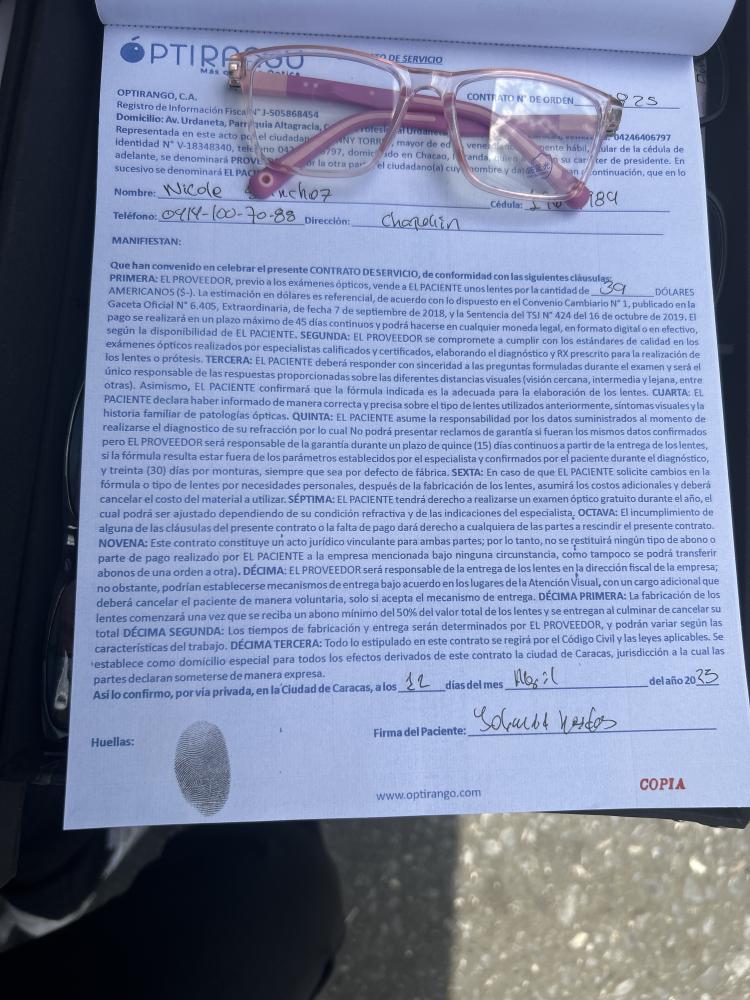 ÓPTIRANGO
TO DE SERVICIO
CONTRATO N° DE ORDEN 825
OPTIRANGO, C.A.
Registro de Información Fiscal N° J-505868454
Domicilio: Av. Urdaneta, Parroquia Altagracia, Urdaneta 04246406797
Representada en este acto por el ciudadano NNY TORRE, mayor de edad, hábil, de la cédula de
Identidad N° V-18348340, 797, domiciliado en Chacao, en su carácter de presidente. En
adelante, se denominará PROVE por la otra parte el ciudadano(a) cuyo nombre continuación, que en lo
sucesivo se denominará EL PAC
Nombre: Nicole Cédula: 189
Teléfono: 0414-100-70-88 Dirección:
MANIFIESTAN:
Que han convenido en celebrar el presente CONTRATO DE SERVICIO, de conformidad con las siguientes cláusulas:
PRIMERA: EL PROVEEDOR, previo a los exámenes ópticos, vende a EL PACIENTE unos lentes por la cantidad de 39 DÓLARES
AMERICANOS ($-). La estimación en dólares es referencial, de acuerdo con lo dispuesto en el Convenio Cambiario N° 1, publicado en la
Gaceta Oficial N° 6.405, Extraordinaria, de fecha 7 de septiembre de 2018, y la Sentencia del TSJ N° 424 del 16 de octubre de 2019. El
pago se realizará en un plazo máximo de 45 días continuos y podrá hacerse en cualquier moneda legal, en formato digital o en efectivo,
según la disponibilidad de EL PACIENTE. SEGUNDA: EL PROVEEDOR se compromete a cumplir con los estándares de calidad en los
exámenes ópticos realizados por especialistas calificados y certificados, elaborando el diagnóstico y RX prescrito para la realización de
los lentes o prótesis. TERCERA: EL PACIENTE deberá responder con sinceridad a las preguntas formuladas durante el examen y será el
único responsable de las respuestas proporcionadas sobre las diferentes distancias visuales (visión cercana, intermedia y lejana, entre
otras). Asimismo, EL PACIENTE confirmará que la fórmula indicada es la adecuada para la elaboración de los lentes. CUARTA: EL
PACIENTE declara haber informado de manera correcta y precisa sobre el tipo de lentes utilizados anteriormente, síntomas visuales y la
historia familiar de patologías ópticas. QUINTA: EL PACIENTE asume la responsabilidad por los datos suministrados al momento de
realizarse el diagnostico de su refracción por lo cual No podrá presentar reclamos de garantía si fueran los mismos datos confirmados
pero EL PROVEEDOR será responsable de la garantía durante un plazo de quince (15) días continuos a partir de la entrega de los lentes,
si la fórmula resulta estar fuera de los parámetros establecidos por el especialista y confirmados por el paciente durante el diagnóstico,
y treinta (30) días por monturas, siempre que sea por defecto de fábrica. SEXTA: En caso de que EL PACIENTE solicite cambios en la
fórmula o tipo de lentes por necesidades personales, después de la fabricación de los lentes, asumirá los costos adicionales y deberá
cancelar el costo del material a utilizar. SÉPTIMA: EL PACIENTE tendrá derecho a realizarse un examen óptico gratuito durante el año, el
cual podrá ser ajustado dependiendo de su condición refractiva y de las indicaciones del especialista. OCTAVA: El incumplimiento de
alguna de las cláusulas del presente contrato o la falta de pago dará derecho a cualquiera de las partes a rescindir el presente contrato.
NOVENA: Este contrato constituye un acto jurídico vinculante para ambas partes; por lo tanto, no se restituirá ningún tipo de abono o
parte de pago realizado por EL PACIENTE a la empresa mencionada bajo ninguna circunstancia, como tampoco se podrá transferir
abonos de una orden a otra). DÉCIMA: EL PROVEEDOR será responsable de la entrega de los lentes en la dirección fiscal de la empresa;
no obstante, podrían establecerse mecanismos de entrega bajo acuerdo en los lugares de la Atención Visual, con un cargo adicional que
deberá cancelar el paciente de manera voluntaria, solo si acepta el mecanismo de entrega. DÉCIMA PRIMERA: La fabricación de los
lentes comenzará una vez que se reciba un abono mínimo del 50% del valor total de los lentes y se entregan al culminar de cancelar su
total DÉCIMA SEGUNDA: Los tiempos de fabricación y entrega serán determinados por EL PROVEEDOR, y podrán variar según las
características del trabajo. DÉCIMA TERCERA: Todo lo estipulado en este contrato se regirá por el Código Civil y las leyes aplicables. Se
establece como domicilio especial para todos los efectos derivados de este contrato la ciudad de Caracas, jurisdicción a la cual las
partes declaran someterse de manera expresa.
Así lo confirmo, por vía privada, en la Ciudad de Caracas, a los 12 días del mes Abril del año 2025
Huellas:
Firma del Paciente:
www.optirango.com
COPIA